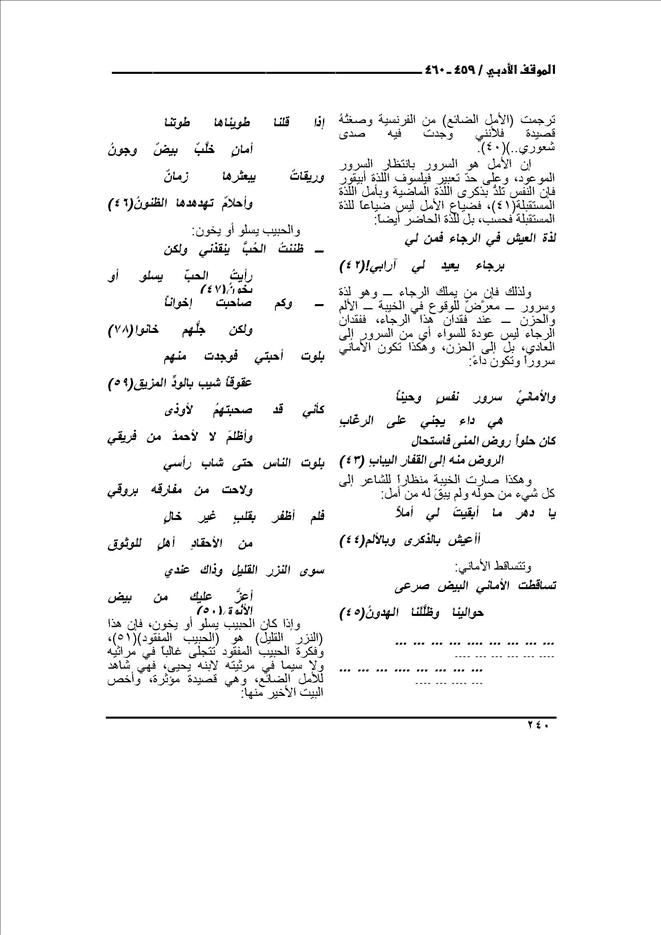 الموقف الأدبي / ٤٥٩ ـ ٤٦٠
ترجمت (الأمل الضائع) من الفرنسية وصغتُهُ
قصيدة فلأنني وجدت فيه صدى
شعوري..)(٤٠).
إن الأمل هو السرور بانتظار السرور
الموعود، وعلى حدّ تعبير فيلسوف اللذة أبيقور
فإن النفس تلذُّ بذكرى اللذة الماضية وبأمل اللذة
المستقبلة(٤١)، فضياع الأمل ليس ضياعاً للذة
المستقبلة فحسب، بل للذة الحاضر أيضاً:
لذة العيش في الرجاء فمن لي
برجاء يعيد لي آرابي!(٤٢)
ولذلك فإن من يملك الرجاء ــ وهو لذة
وسرور ــ معرّضٌ للوقوع في الخيبة ــ الألم
والحزن ــ عند فقدان هذا الرجاء، ففقدان
الرجاء ليس عودة للسواء أي من السرور إلى
العادي، بل إلى الحزن، وهكذا تكون الأماني
سروراً وتكون داءً:
والأمانيُّ سرور نفسٍ وحيناً
هي داء يجني على الرغّابِ
كان حلواً روض المنى فاستحال
الروض منه إلى القفار اليباب (٤٣)
وهكذا صارت الخيبة منظاراً للشاعر إلى
كل شيء من حوله ولم يبقَ له من أمل:
يا دهر ما أبقيتَ لي أملاً
أأعيش بالذكرى وبالألم(٤٤)
وتتساقط الأماني:
تساقطت الأماني البيض صرعى
حوالينا وظلّلنا الهدونُ(٤٥)
... ... ... ... .... ... ... ...
.... ... ... ... ... ....
... ... ... ... .... ... ... ...
... .... ... ....
إذا قلنا طويناها طوتنا
أمانٍ خلَّبٌ بيضٌ وجونُ
وريقاتٌ يبعثرها زمانٌ
وأحلامٌ تهدهدها الظنونُ(٤٦)
والحبيب يسلو أو يخون:
ــ ظننتُ الحُبَّ ينقذني ولكن
رأيتُ الحبّ يسلو أو
يخونُ(٤٧)
ــ وكم صاحبت إخواناً
ولكن جلُّهم خانوا(٧٨)
بلوت أحبتي فوجدت منهم
عقوقاً شيب بالودِّ المزيق(٥٩)
كأني قد صحبتهمُ لأوذى
وأظلمَ لا لأحمدَ من فريقي
بلوت الناس حتى شاب رأسي
ولاحت من مفارقه بروقي
فلم أظفر بقلبٍ غير خالٍ
من الأحقادِ أهلٍ للوثوق
سوى النزر القليل وذاك عندي
أعزُّ عليك من بيض
الأنُوق(٥٠)
وإذا كان الحبيب يسلو أو يخون، فإن هذا
(النزر القليل) هو (الحبيب المفقود)(٥١)،
وفكرة الحبيب المفقود تتجلّى غالباً في مراثيه
ولا سيما في مرثيته لابنه يحيى، فهي شاهد
للأمل الضائع، وهي قصيدة مؤثرة، وأخص
البيت الأخير منها:
٢٤٠